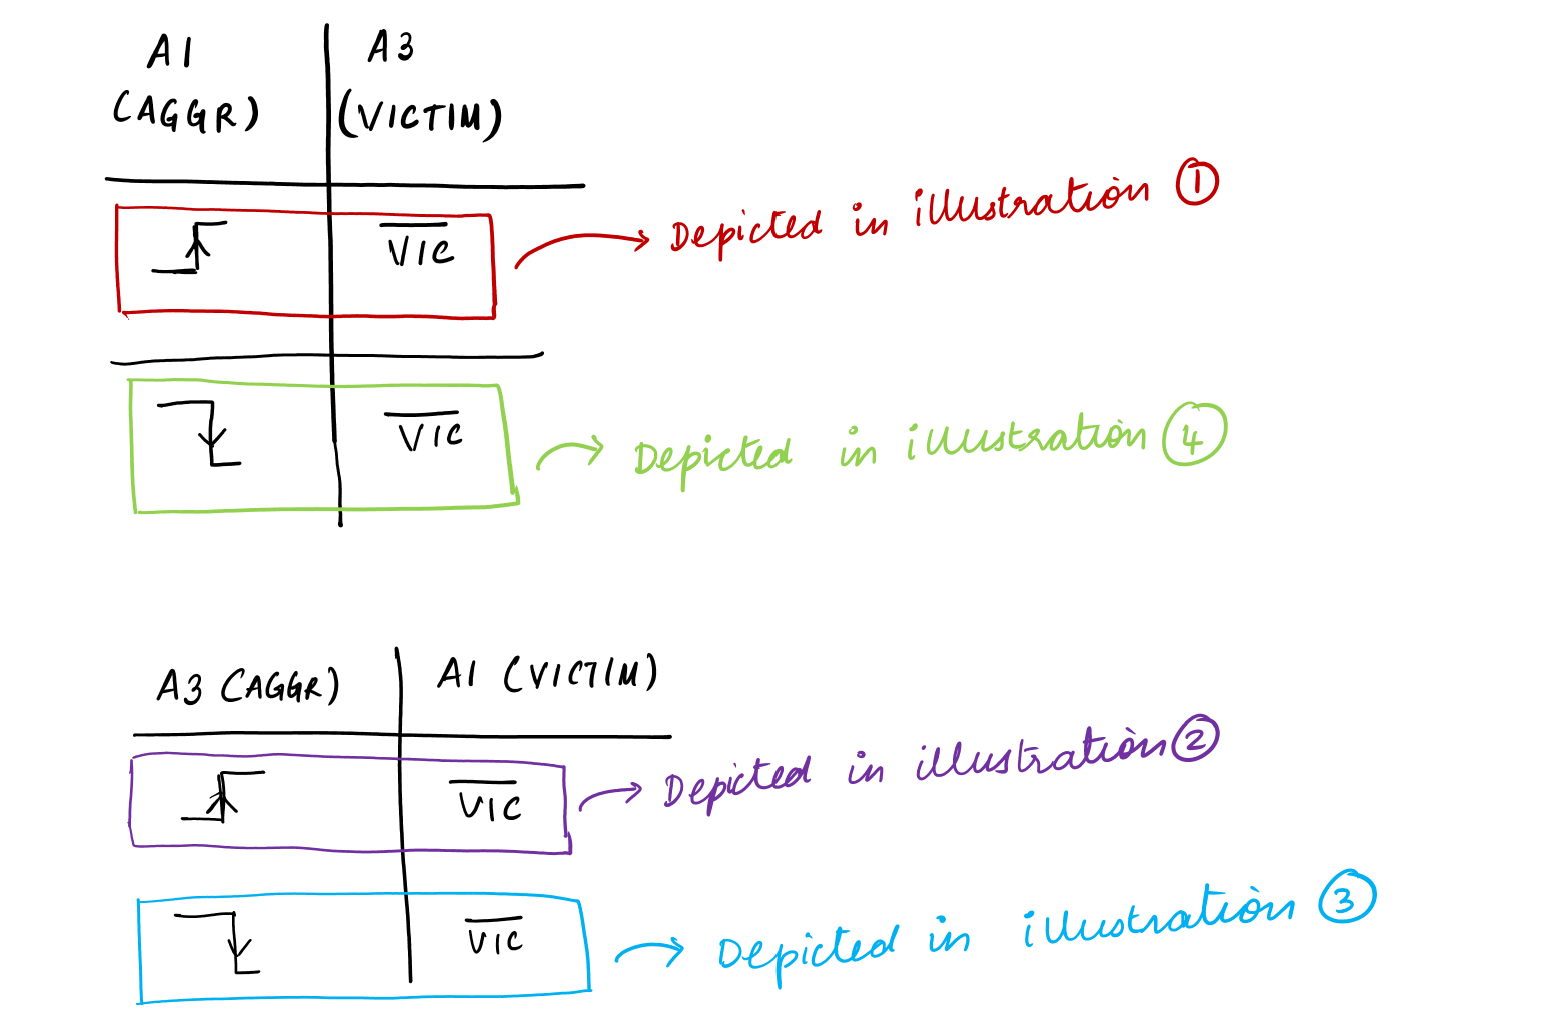 A1 A3
(AGGR) (VICTIM)
VIC Depicted in illustration 1
VIC Depicted in illustration 4
A3 (AGGR) A1 (VICTIM)
VIC Depicted in illustration 2
VIC Depicted in illustration 3